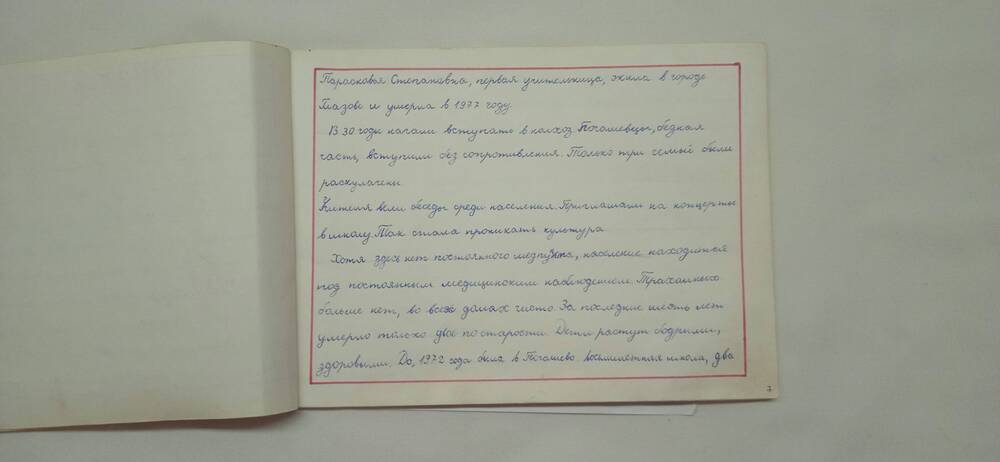 Парасковья Степановна, первая учительница, жила в городе
Глазове и умерла в 1977 году.
В 30 годы начали вступать в колхоз Погашевцы, бедная
часть, вступили без сопротивления. Только три семьи были
раскулачены.
Жителя вели беседы среди населения. Приглашали на концерты
в школу. Так стала проникать культура.
Хотя здесь нет постоянного медпункта, население находится
под постоянным медицинским наблюдением. Трахомных
больше нет, во всех домах чисто. За последние шесть лет
умерло только двое по старости. Дети растут бодрыми,
здоровыми. До, 1972 года была в Погашево восьмилетняя школа, два
7